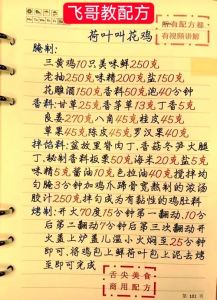 飞哥教配方
所有配方都
有视频讲解
荷叶叫花鸡
腌制:
三黄鸡10只美味鲜250克
老抽250克味精200克盐150克
花雕酒150克香料50克泡40分钟
香料:甘草25克香茅草13克丁香5克
良姜270克八角45克桂皮45克
草果45克陈皮45克罗汉果40克
拌馅料:盆放里脊肉丁、香菇冬笋火腿
丁、秘制香料板栗50克海米20克盐5克
味精5克酱油10克色拉油40克搅拌均
匀腌3分钟加鸡爪蹄骨宽熬制的浓汤
胶计250克拌成为有黏性的鸡肚料
烤制:开火70度15分钟第一翻动、10分
后第二翻动7分钟后第三次翻动开
火盖上炉盖儿温小火焖至25分钟
即可、将鸡包上鲜荷叶包上泥去烤
至即可完成
舌尖美食
商用配方
第 101 页